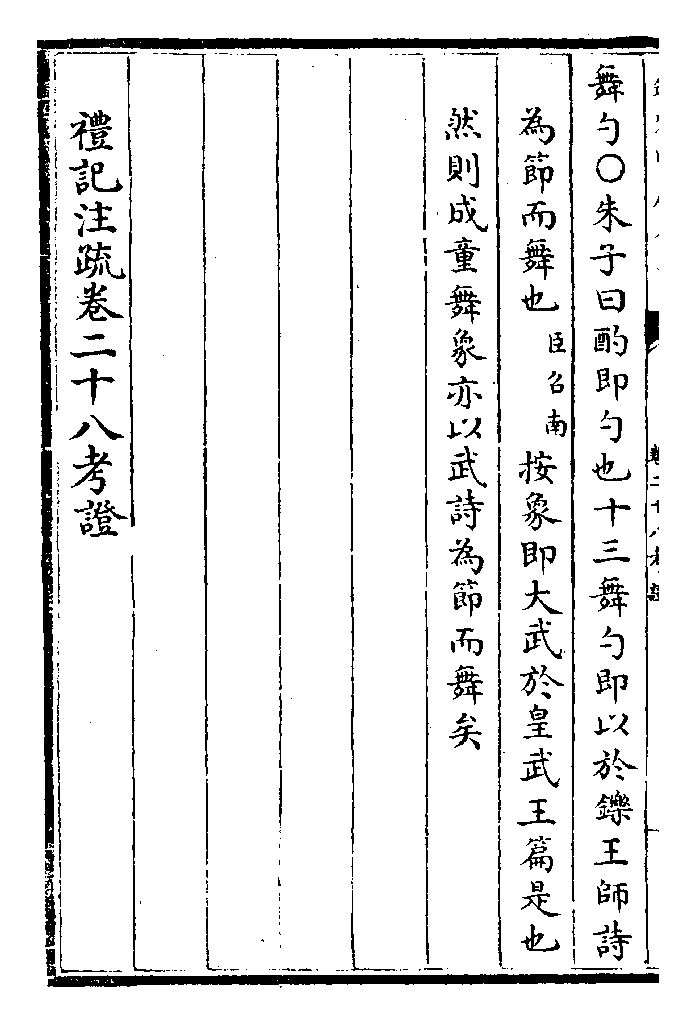 舞勺○朱子曰酌即勺也十三舞勺即以於鑠王師詩
為節而舞也臣召南按象即大武於皇武王篇是也
然則成童舞象亦以武詩為節而舞矣
禮記注疏卷二十八考證